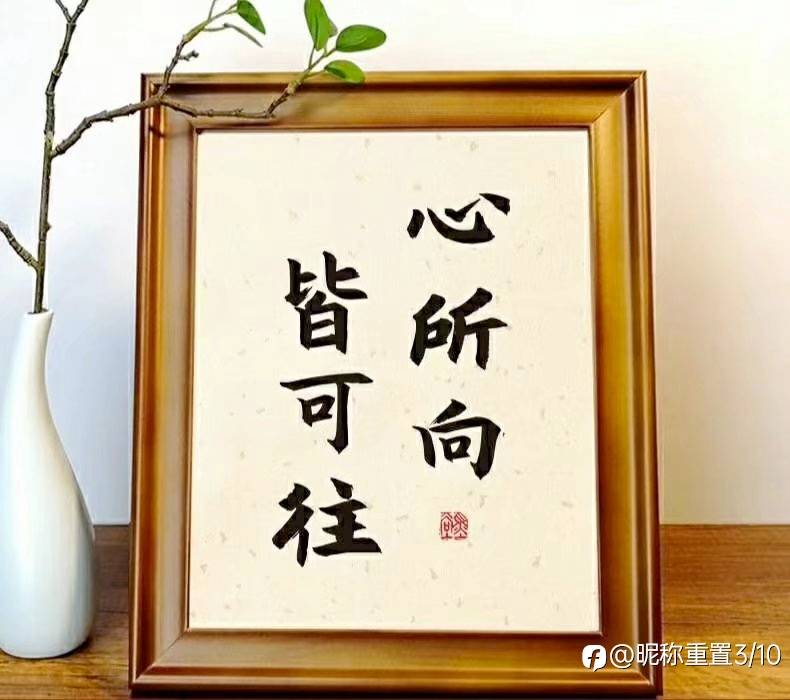 心所向
皆可往
@昵称重置3/10